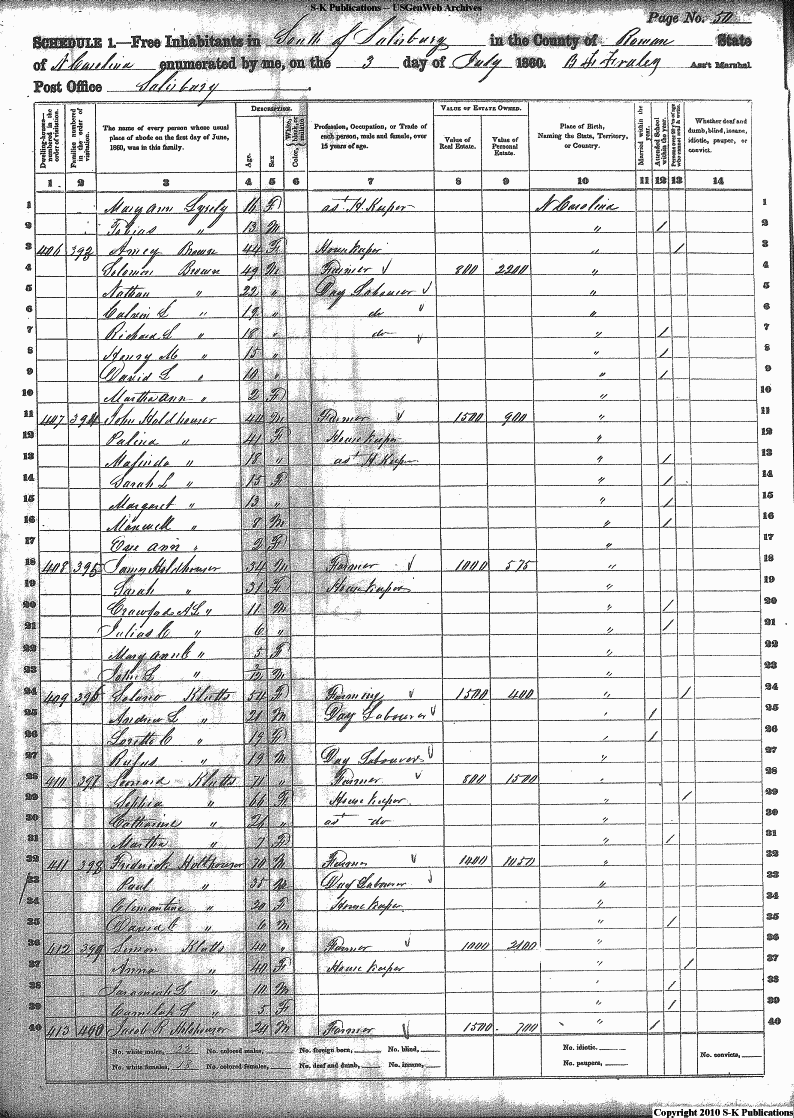 S-K Publications -- USGenWeb Archives
Page No. 50
SCHEDULE 1.—Free Inhabitants in South of Salisbury in the County of Rowan State
of N Carolina enumerated by me, on the 3 day of July 1860. Ass't Marshal.
Post Office Salisbury
Dwelling-houses—numbered in the order of visitation.
Families numbered in the order of visitation.
The name of every person whose usual place of abode on the first day of June, 1860, was in this family.
DESCRIPTION.
Age.
Sex
Color, White, black, or mulatto
Profession, Occupation, or Trade of each person, male and female, over 15 years of age.
VALUE OF ESTATE OWNED.
Value of Real Estate.
Value of Personal Estate.
Place of Birth, Naming the State, Territory, or Country.
Married within the year.
Attended School within the year.
Whether deaf and dumb, blind, insane, idiotic, pauper, or convict.
1 2 3 4 5 6 7 8 9 10 11 12 13 14
1 Mary Ann 16 F ast H Keeper N Carolina 1
2 Tobias " 13 M " / 2
3 406 393 Amey Brown 44 F House keeper " / 3
4 Solomon Brown 49 M Farmer 800 2200 " 4
5 Nathan " 22 " Day Labourer " 5
6 Calvin L " 19 " do " 6
7 Richard L " 18 " do " / 7
8 Henry M " 15 " " / 8
9 David L " 10 " " / 9
10 Martha ann " 2 F " 10
11 407 394 John Holdhouser 44 M Farmer 1500 900 " 11
12 Palina " 41 F House Keeper " 12
13 Malinda " 18 " ast H Keeper " / 13
14 Sarah L " 15 F " / 14
15 Margaret " 13 " " / 15
16 Maxwell " 8 M " / 16
17 Eve Ann " 2 F " 17
18 408 395 James Holdhouser 34 M Farmer 1000 575 " 18
19 Sarah " 31 F House Keeper " 19
20 Crawford A L " 11 M " / 20
21 Julius C " 6 " " / 21
22 Mary Ann C " 5 F " 22
23 John L " 3/12 M " 23
24 409 396 Klutts 54 F Farming 1500 400 " / 24
25 Andrew L " 21 M Day Labourer " / 25
26 Loretto C " 19 F " / 26
27 Rufus " 19 M Day Labourer " 27
28 410 397 Leonard Klutts 71 " Farmer 800 1500 " 28
29 Sophia " 66 F House Keeper " / 29
30 Catharine " 24 " ast do " 30
31 Martha " 7 F " / 31
32 411 398 Frederick Holthouser 70 M Farmer 1400 1050 " 32
33 Paul " 35 M Day Labourer " 33
34 Clemantine " 20 F House Keeper " 34
35 David C " 6 M " / 35
36 412 399 Simon Klutts 40 " Farmer 1000 2100 " 36
37 Anna " 40 F House Keeper " / 37
38 Jeramiah L " 10 M " / 38
39 Camilah L " 5 F " / 39
40 413 400 Jacob R Holshouser 24 M Farmer 1500 700 " / 40
No. white males, 22 No. colored males, No. foreign born, No. blind, No. idiotic,
No. white females, 18 No. colored females, No. deaf and dumb, No. insane, No. paupers, No. convicts,
Copyright 2010 S-K Publications